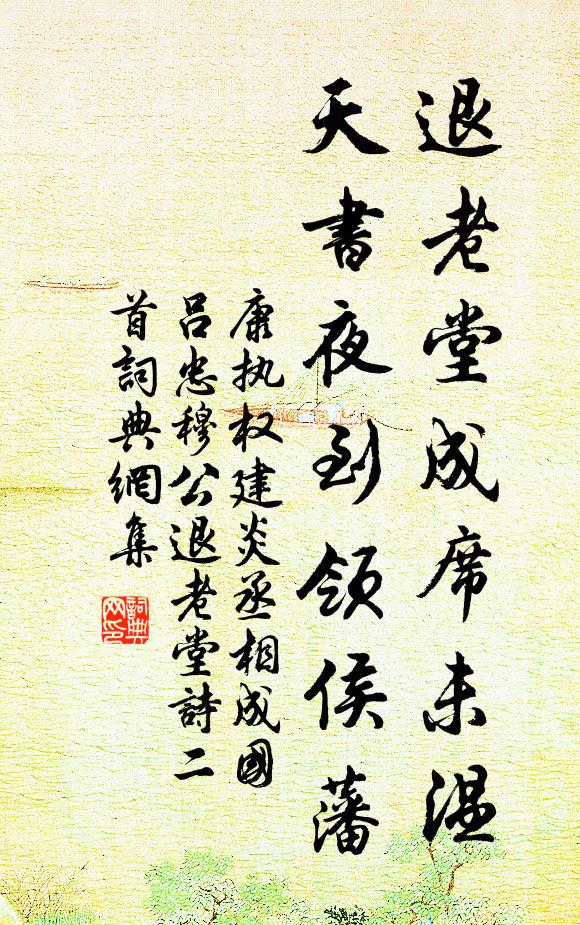 退老堂成席未温
天書夜到領侯藩
康执权建炎丞相成國
吕忠穆公退老堂詩二
首詞典網集
詞典网印